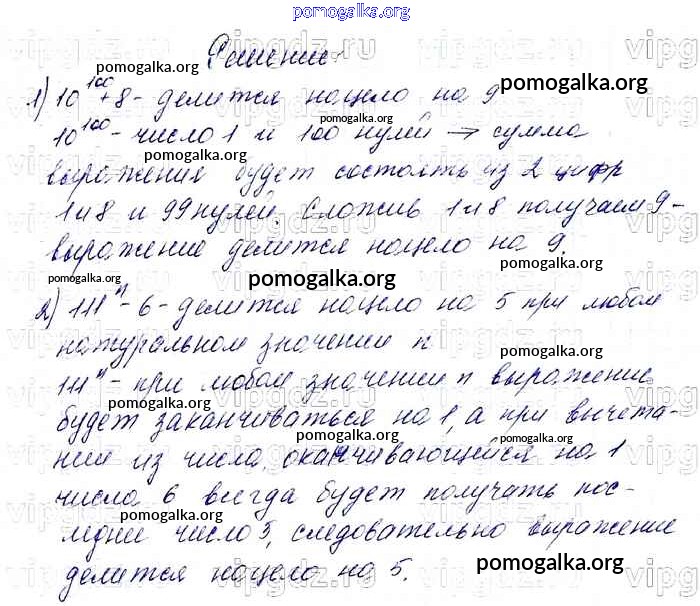 pomogalka.org
Решение.
pomogalka.org
1) 10¹⁰⁰+8 - делится нацело на 9
pomogalka.org
10¹⁰⁰ - число 1 и 100 нулей → сумма
pomogalka.org
выражения будет состоять из 2 цифр
1 и 8 и 99 нулей. Сложив 1 и 8 получаем 9 -
выражение делится нацело на 9.
pomogalka.org pomogalka.org pomogalka.org
2) 111ⁿ - 6 - делится нацело на 5 при любом
натуральном значении n
pomogalka.org
111ⁿ - при любом значении n выражение
pomogalka.org
будет заканчиваться на 1, а при вычета-
pomogalka.org
нии из числа, оканчивающейся на 1
числа 6 всегда будет получать пос-
pomogalka.org
леднее число 5, следовательно выражение
делится нацело на 5.
pomogalka.org pomogalka.org